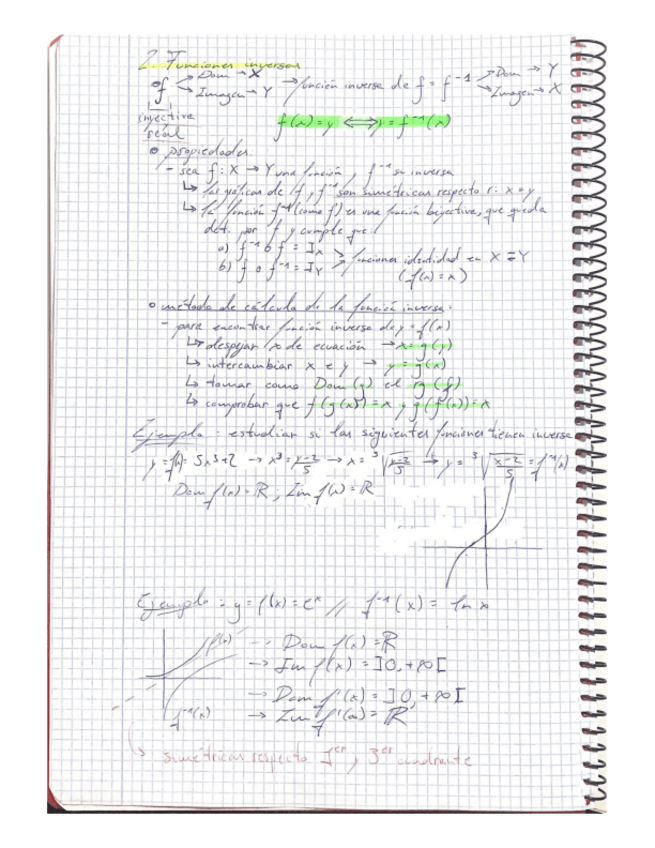 2. Funciones inversas
f → Dom → X → función inversa de f = f⁻¹ → Dom → Y
→ Imagen → Y → Imagen → X
inyectiva
real
f(x) = y ⟺ x = f⁻¹(x)
• propiedades
- sea f: X → Y una función y f⁻¹ su inversa
↳ las gráficas de f y f⁻¹ son simétricas respecto r: x = y
↳ la función f⁻¹ (como f) es una función biyectiva, que queda
det. por f y cumple que:
a) f⁻¹ o f = I_X > funciones identidad en X = Y
b) f o f⁻¹ = I_Y (f(x) = x)
• método de cálculo de la función inversa:
- para encontrar función inversa de y = f(x)
↳ despejar x de ecuación → x = g(y)
↳ intercambiar x e y → y = g(x)
↳ tomar como Dom(g) el rg(f)
↳ comprobar que f(g(x)) = x y g(f(x)) = x
Ejemplo: estudiar si las siguientes funciones tienen inversa
y = f(x) = 5x³+2 → x³ = y-2/5 → x = ³√y-2/5 → y = ³√x-2/5 = f⁻¹(x)
Dom f(x) = ℝ, Im f(x) = ℝ
Ejemplo: y = f(x) = eˣ // f⁻¹(x) = ln x
f(x) → Dom f(x) = ℝ
→ Im f(x) = ]0, +∞[
→ Dom f⁻¹(x) = ]0, +∞[
f⁻¹(x) → Im f⁻¹(x) = ℝ
↳ simétricas respecto 1er y 3er cuadrante